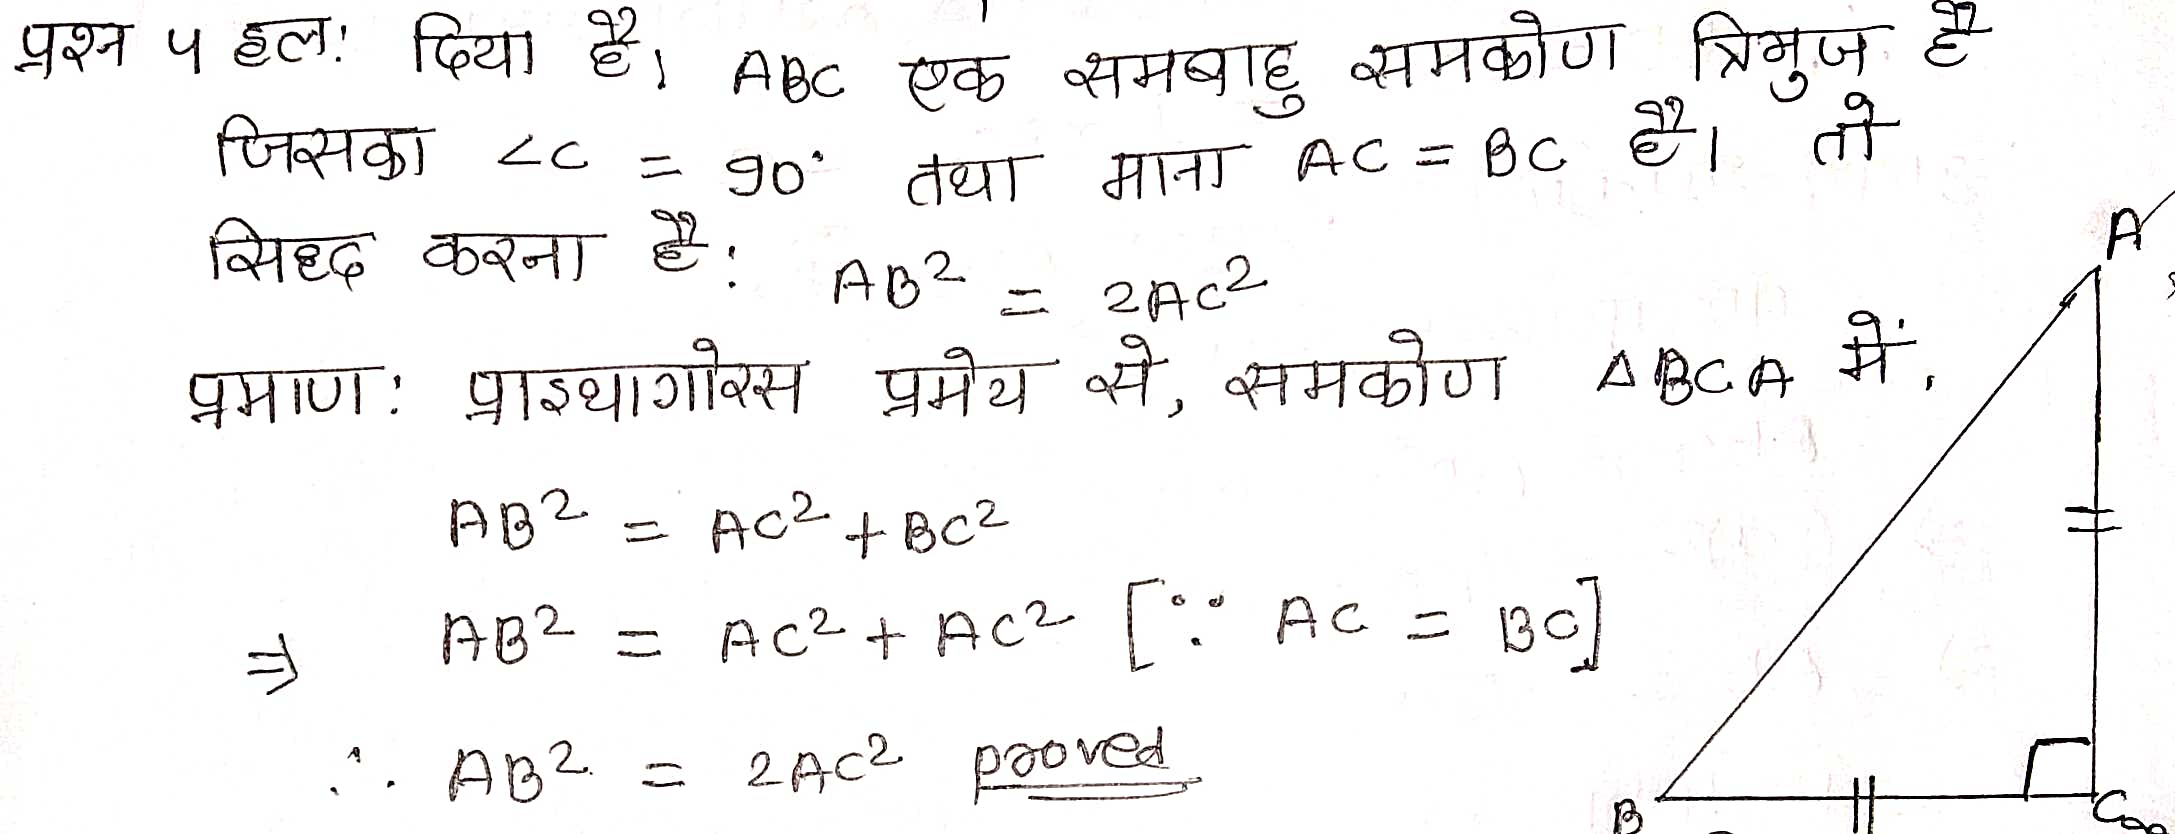 प्रश्न ५ हल: दिया है। ABC एक समबाहु समकोण त्रिभुज है
जिसका ∠C = 90° तथा माना AC = BC है। तो
सिध्द करना है: AB² = 2AC²
प्रमाण: प्राइथागोरस प्रमेय से, समकोण ΔBCA में,
AB² = AC² + BC²
⇒ AB² = AC² + AC² [∵ AC = BC]
∴ AB² = 2AC² proved
A
B
C